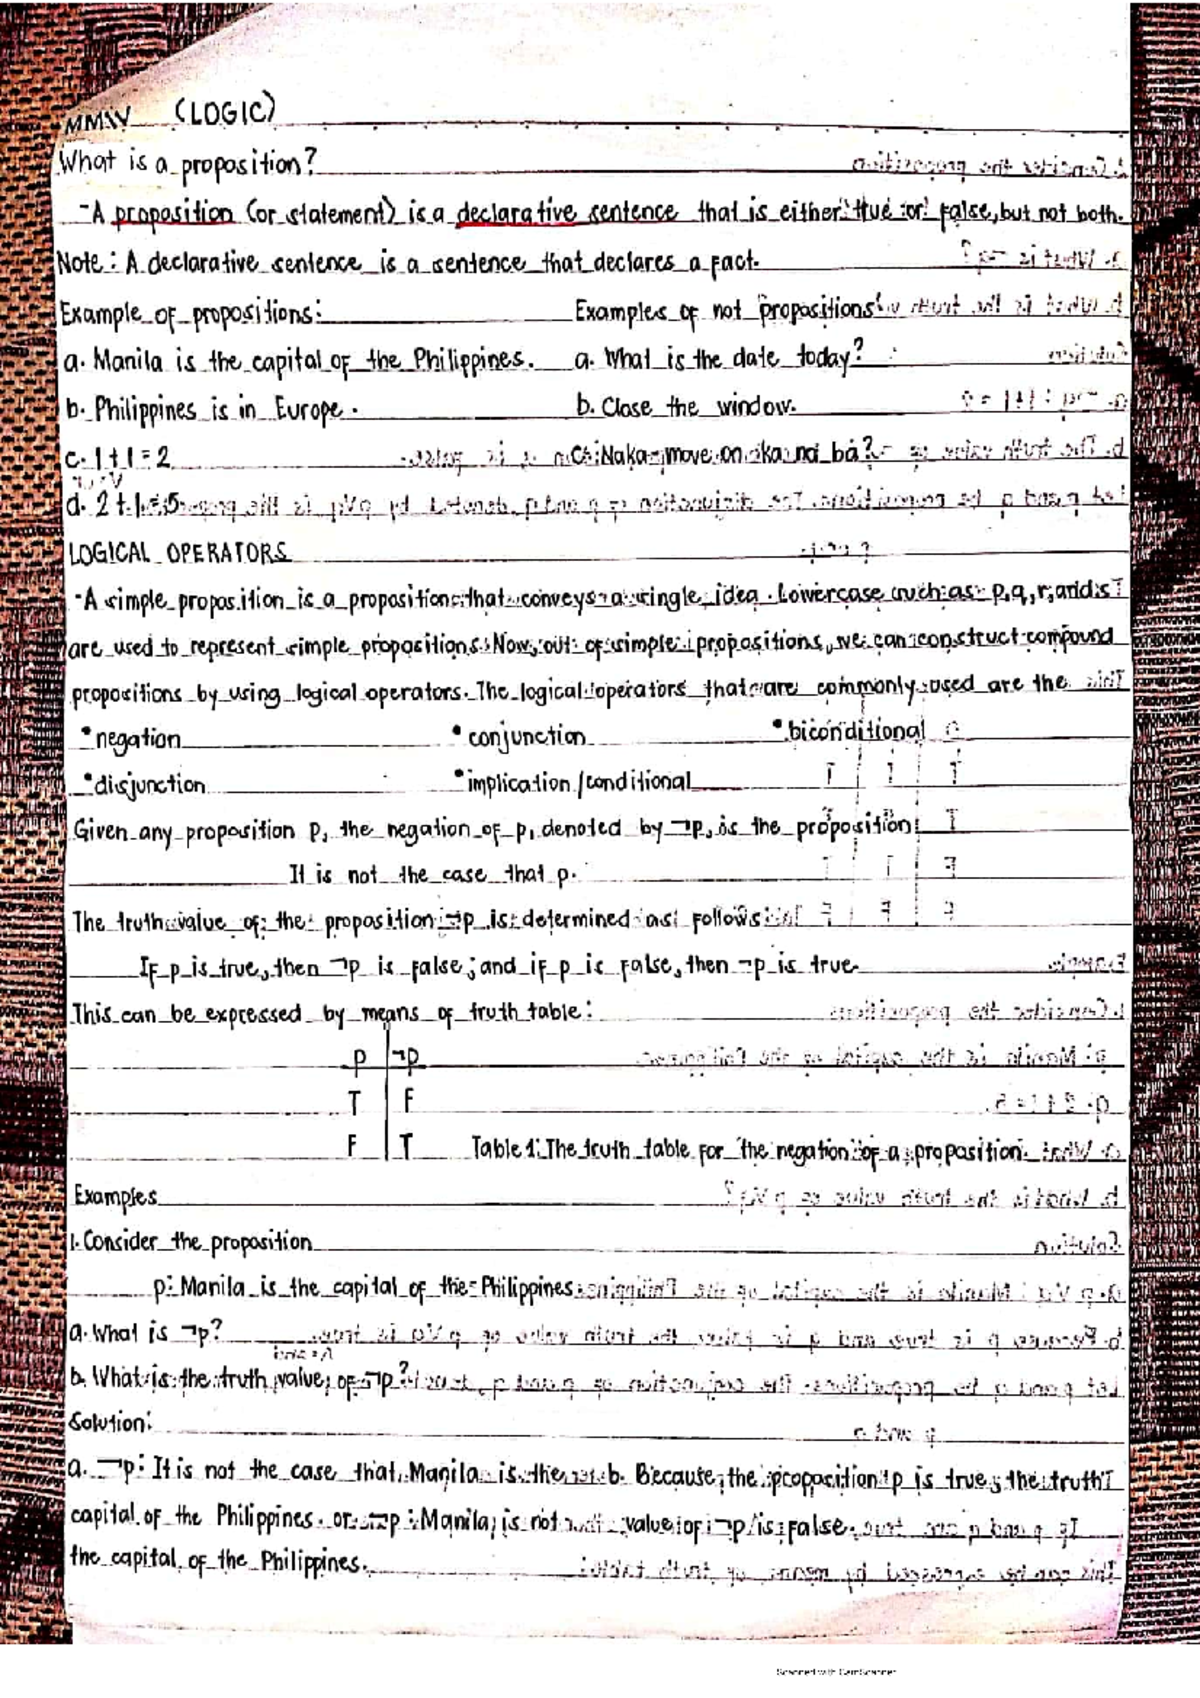 MMW (LOGIC)
What is a proposition?
-A proposition (or statement) is a declarative sentence that is either true or false, but not both.
Note: A declarative sentence is a sentence that declares a fact.
Example of propositions: Examples of not propositions
a. Manila is the capital of the Philippines. a. What is the date today?
b. Philippines is in Europe. b. Close the window.
c. 1+1=2 c. Naka-move on ka na ba?
d. 2+1=5
LOGICAL OPERATORS
-A simple proposition is a proposition that conveys a single idea. Lowercase such as p,q,r, and s
are used to represent simple propositions. Now, out of simple propositions, we can construct compound
propositions by using logical operators. The logical operators that are commonly used are the
•negation •conjunction •biconditional
•disjunction •implication/conditional
Given any proposition p, the negation of p, denoted by ¬p, is the proposition
It is not the case that p.
The truth value of the proposition ¬p is determined as follows:
If p is true, then ¬p is false; and if p is false, then ¬p is true.
This can be expressed by means of truth table:
p ¬p
T F
F T Table 1. The truth table for the negation of a proposition.
Examples
1. Consider the proposition
p: Manila is the capital of the Philippines.
a. What is ¬p?
b. What is the truth value of ¬p?
Solution:
a. ¬p: It is not the case that Manila is the b. Because the proposition p is true, the truth
capital of the Philippines. or ¬p: Manila is not value of ¬p is false.
the capital of the Philippines.
Scanned with CamScanner